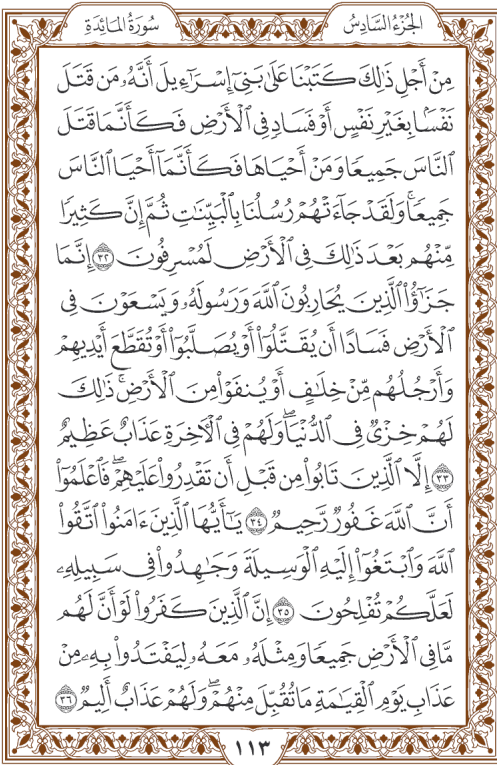 الجُزْءُ السَّادِسُ
سُورَةُ المَائِدَةِ
مِنْ أَجْلِ ذَٰلِكَ كَتَبْنَا عَلَىٰ بَنِىٓ إِسْرَٰٓءِيلَ أَنَّهُۥ مَن قَتَلَ
نَفْسًۢا بِغَيْرِ نَفْسٍ أَوْ فَسَادٍ فِى ٱلْأَرْضِ فَكَأَنَّمَا قَتَلَ
ٱلنَّاسَ جَمِيعًا وَمَنْ أَحْيَاهَا فَكَأَنَّمَآ أَحْيَا ٱلنَّاسَ
جَمِيعًا ۚ وَلَقَدْ جَآءَتْهُمْ رُسُلُنَا بِٱلْبَيِّنَٰتِ ثُمَّ إِنَّ كَثِيرًا
مِّنْهُم بَعْدَ ذَٰلِكَ فِى ٱلْأَرْضِ لَمُسْرِفُونَ ٣٢ إِنَّمَا
جَزَٰٓؤُا۟ ٱلَّذِينَ يُحَارِبُونَ ٱللَّهَ وَرَسُولَهُۥ وَيَسْعَوْنَ فِى
ٱلْأَرْضِ فَسَادًا أَن يُقَتَّلُوٓا۟ أَوْ يُصَلَّبُوٓا۟ أَوْ تُقَطَّعَ أَيْدِيهِمْ
وَأَرْجُلُهُم مِّنْ خِلَٰفٍ أَوْ يُنفَوْا۟ مِنَ ٱلْأَرْضِ ۚ ذَٰلِكَ
لَهُمْ خِزْىٌ فِى ٱلدُّنْيَا ۖ وَلَهُمْ فِى ٱلْءَاخِرَةِ عَذَابٌ عَظِيمٌ
٣٣ إِلَّا ٱلَّذِينَ تَابُوا۟ مِن قَبْلِ أَن تَقْدِرُوا۟ عَلَيْهِمْ ۖ فَٱعْلَمُوٓا۟
أَنَّ ٱللَّهَ غَفُورٌ رَّحِيمٌ ٣٤ يَٰٓأَيُّهَا ٱلَّذِينَ ءَامَنُوا۟ ٱتَّقُوا۟
ٱللَّهَ وَٱبْتَغُوٓا۟ إِلَيْهِ ٱلْوَسِيلَةَ وَجَٰهِدُوا۟ فِى سَبِيلِهِۦ
لَعَلَّكُمْ تُفْلِحُونَ ٣٥ إِنَّ ٱلَّذِينَ كَفَرُوا۟ لَوْ أَنَّ لَهُم
مَّا فِى ٱلْأَرْضِ جَمِيعًا وَمِثْلَهُۥ مَعَهُۥ لِيَفْتَدُوا۟ بِهِۦ مِنْ
عَذَابِ يَوْمِ ٱلْقِيَٰمَةِ مَا تُقُبِّلَ مِنْهُمْ ۖ وَلَهُمْ عَذَابٌ أَلِيمٌ ٣٦
١١٣